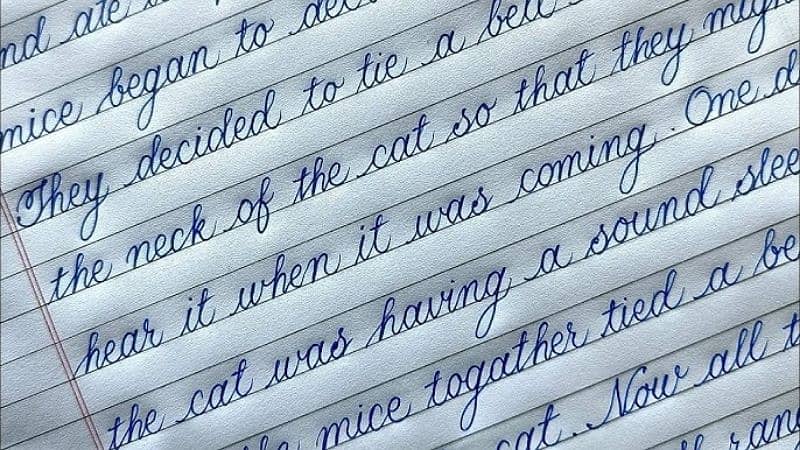 nd ate
mice began to
They decided to tie a bell
the neck of the cat so that they might
hear it when it was coming. One d
the cat was having a sound slee
mice togather tied a be
cat. Now all t
rang